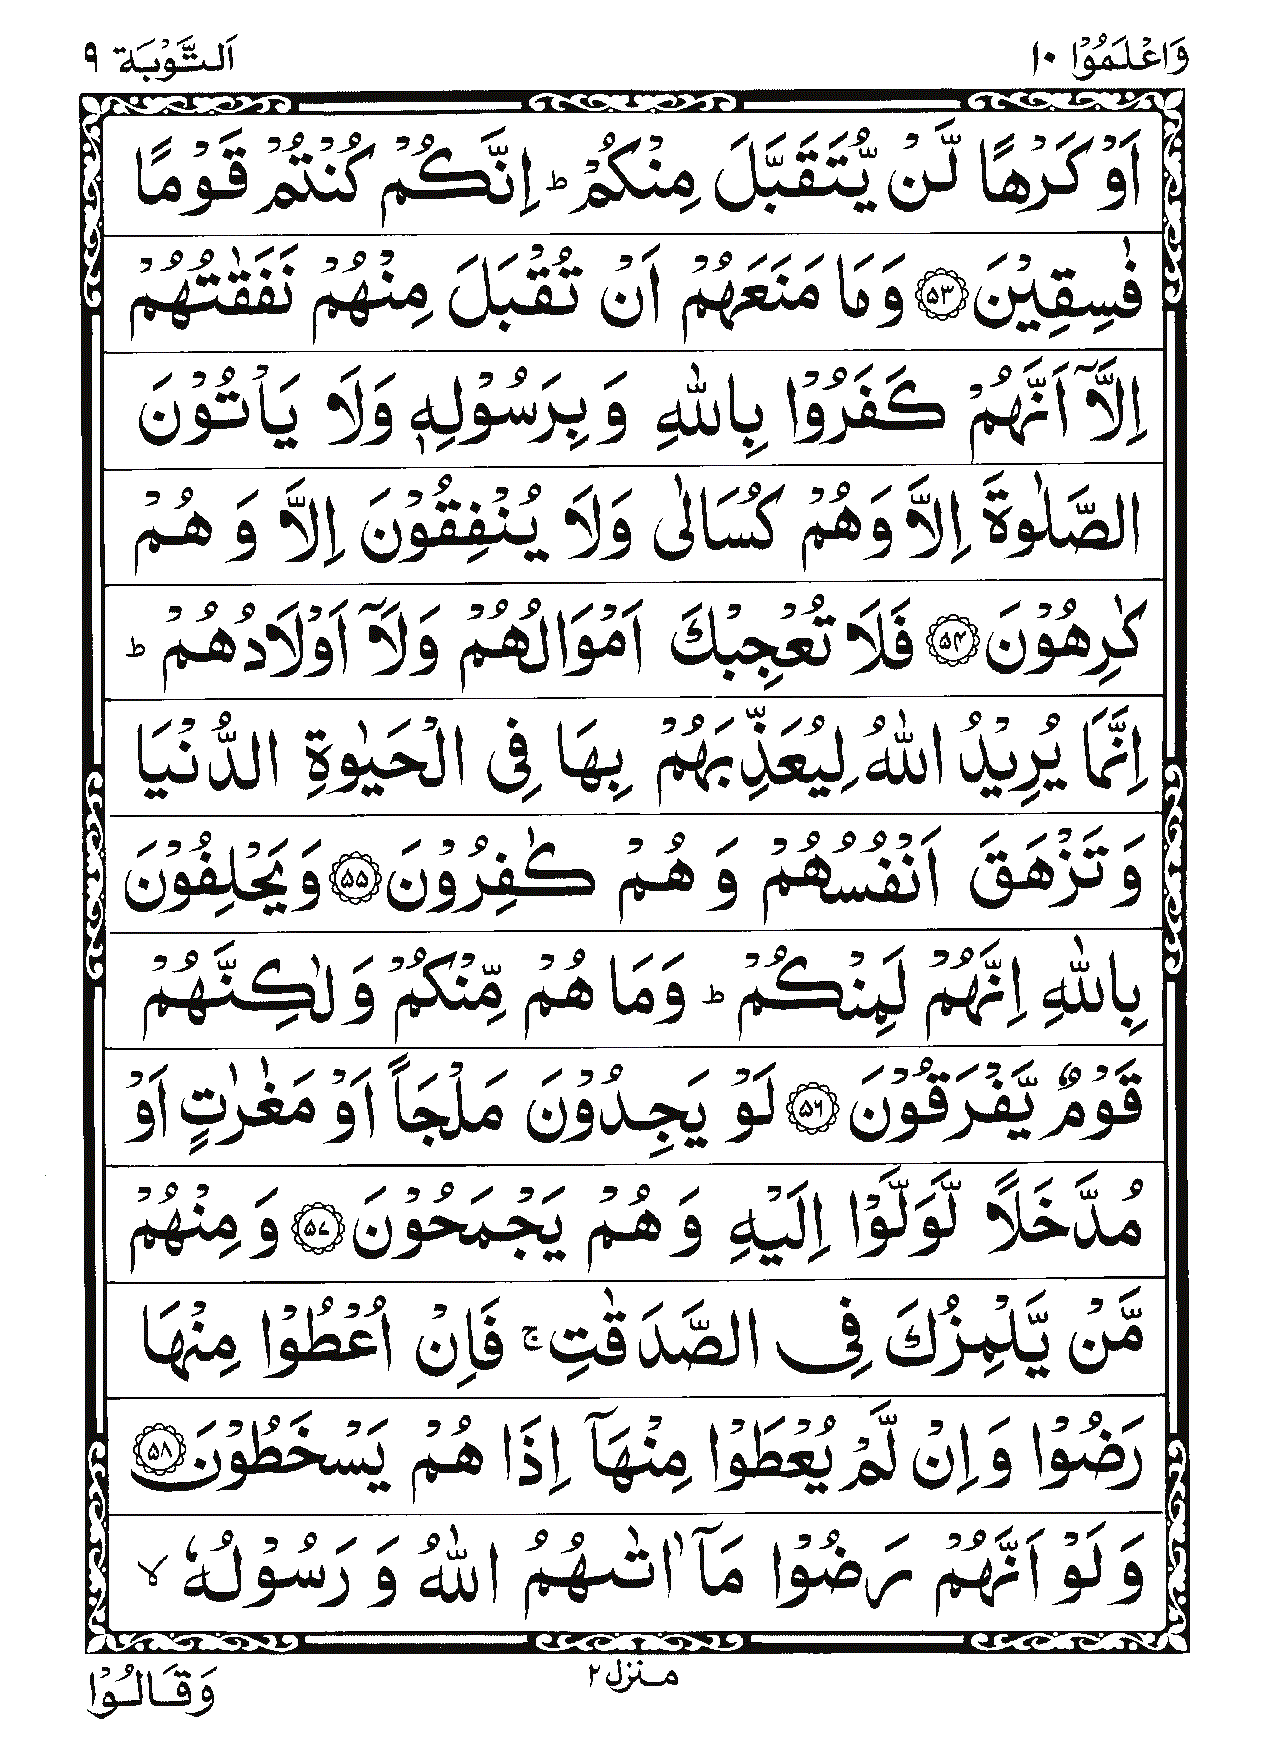 وَاعْلَمُوْۤا ١٠ اَلتَّوْبَة ٩
اَوْ كَرْهًا لَّنْ يُّتَقَبَّلَ مِنْكُمْ ؕ اِنَّكُمْ كُنْتُمْ قَوْمًا
فٰسِقِيْنَ ﴿۵۳﴾ وَمَا مَنَعَهُمْ اَنْ تُقْبَلَ مِنْهُمْ نَفَقٰتُهُمْ
اِلَّاۤ اَنَّهُمْ كَفَرُوْا بِاللّٰهِ وَ بِرَسُوْلِهٖ وَلَا يَاْتُوْنَ
الصَّلٰوةَ اِلَّا وَهُمْ كُسَالٰى وَلَا يُنْفِقُوْنَ اِلَّا وَ هُمْ
كٰرِهُوْنَ ﴿۵۴﴾ فَلَا تُعْجِبْكَ اَمْوَالُهُمْ وَلَاۤ اَوْلَادُهُمْ ؕ
اِنَّمَا يُرِيْدُ اللّٰهُ لِيُعَذِّبَهُمْ بِهَا فِى الْحَيٰوةِ الدُّنْيَا
وَتَزْهَقَ اَنْفُسُهُمْ وَ هُمْ كٰفِرُوْنَ ﴿۵۵﴾ وَيَحْلِفُوْنَ
بِاللّٰهِ اِنَّهُمْ لَمِنْكُمْ ؕ وَمَا هُمْ مِّنْكُمْ وَلٰكِنَّهُمْ
قَوْمٌ يَّفْرَقُوْنَ ﴿۵۶﴾ لَوْ يَجِدُوْنَ مَلْجَاً اَوْ مَغٰرٰتٍ اَوْ
مُدَّخَلًا لَّوَلَّوْا اِلَيْهِ وَ هُمْ يَجْمَحُوْنَ ﴿۵۷﴾ وَ مِنْهُمْ
مَّنْ يَّلْمِزُكَ فِى الصَّدَقٰتِ ۚ فَاِنْ اُعْطُوْا مِنْهَا
رَضُوْا وَاِنْ لَّمْ يُعْطَوْا مِنْهَاۤ اِذَا هُمْ يَسْخَطُوْنَ ﴿۵۸﴾
وَلَوْ اَنَّهُمْ رَضُوْا مَاۤ اٰتٰىهُمُ اللّٰهُ وَ رَسُوْلُهٗ ۙ
منزل ٢
وَقَالُوْا